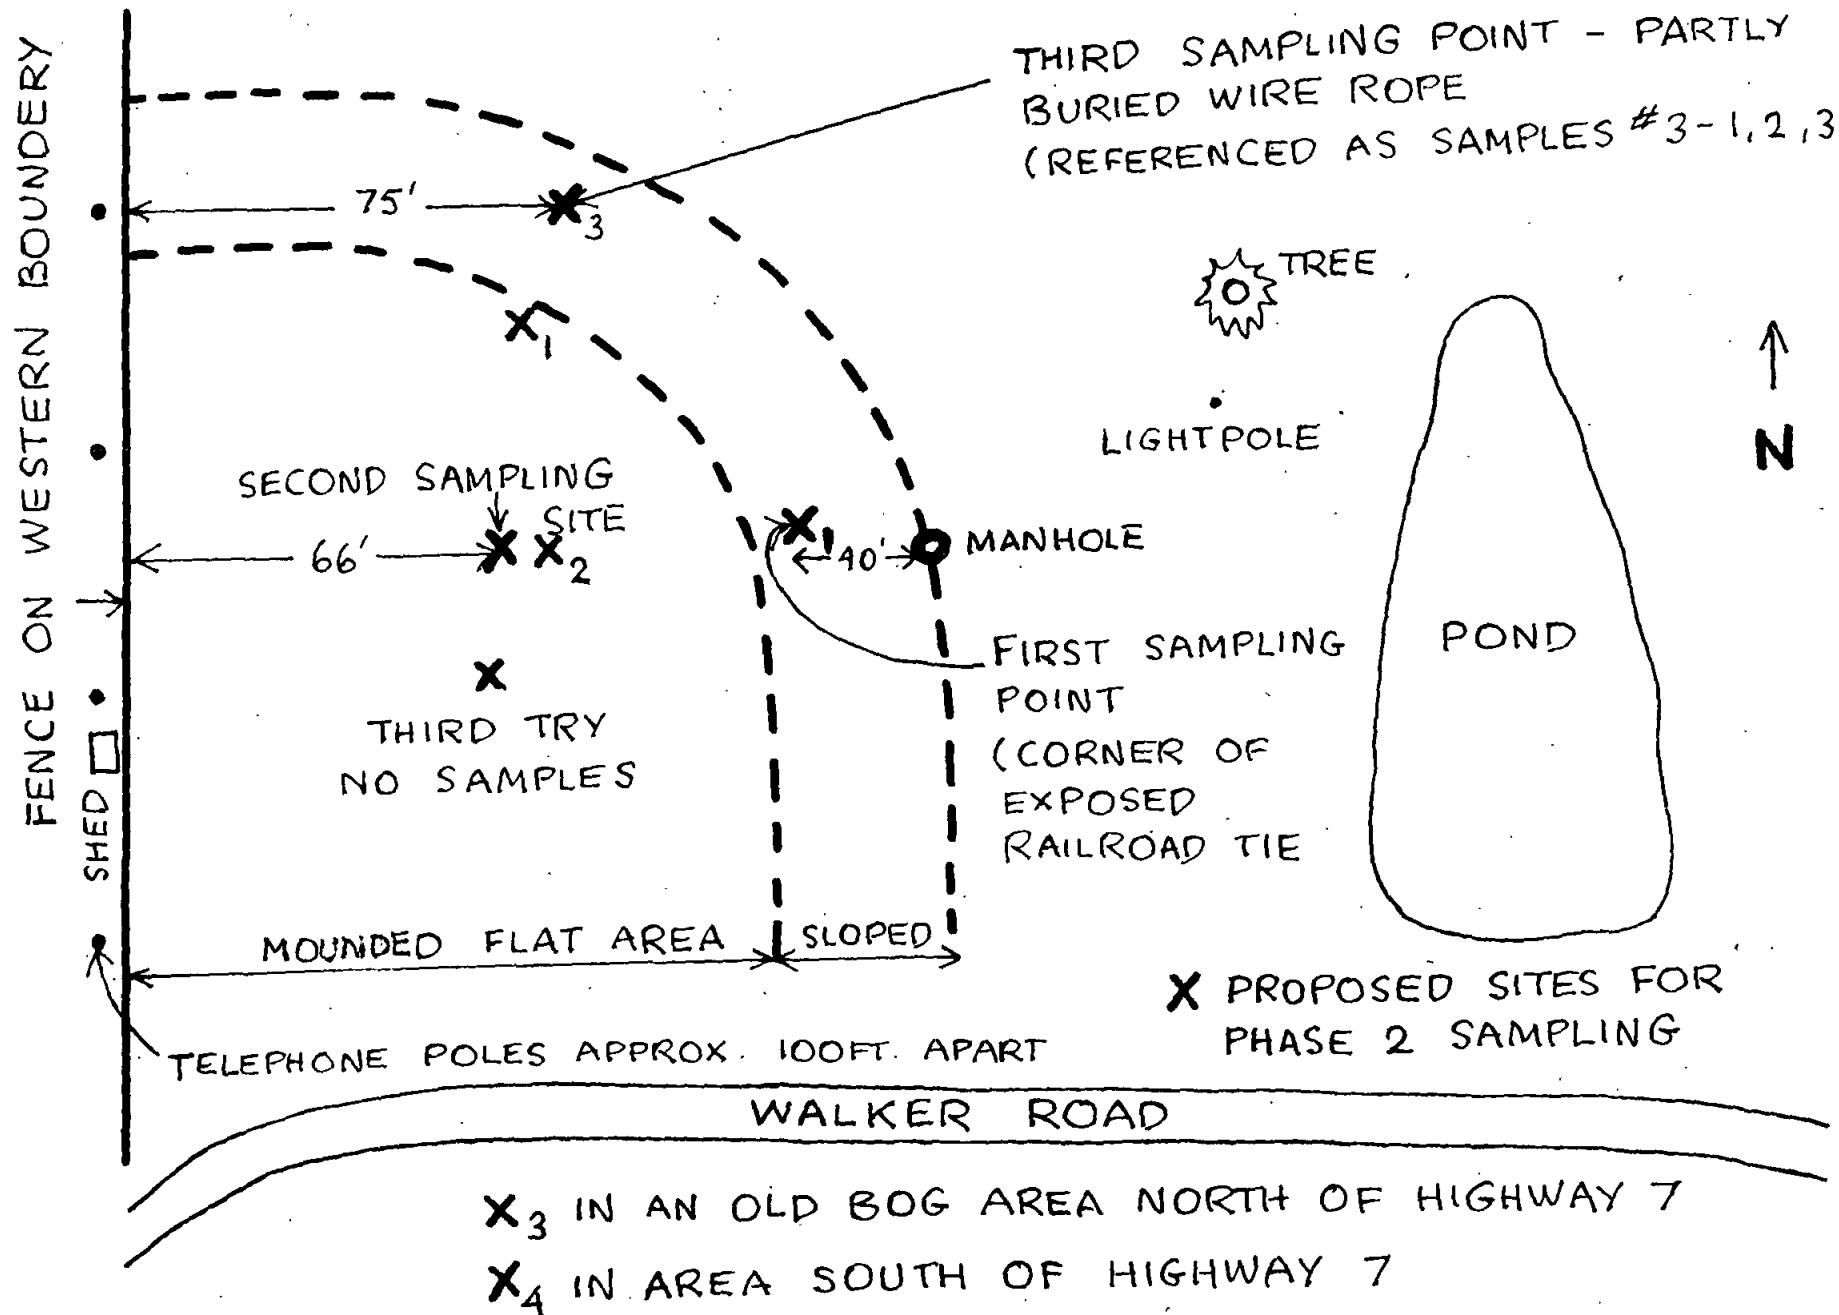 THIRD SAMPLING POINT - PARTLY
BURIED WIRE ROPE
(REFERENCED AS SAMPLES #3-1,2,3
FENCE ON WESTERN BOUNDERY
75'
X3
TREE
X1
LIGHTPOLE
N
SECOND SAMPLING
SITE
66'
X X2
X1
40'
MANHOLE
POND
FIRST SAMPLING
POINT
(CORNER OF
EXPOSED
RAILROAD TIE
X
THIRD TRY
NO SAMPLES
SHED
MOUNDED FLAT AREA
SLOPED
X PROPOSED SITES FOR
PHASE 2 SAMPLING
TELEPHONE POLES APPROX. 100FT. APART
WALKER ROAD
X3 IN AN OLD BOG AREA NORTH OF HIGHWAY 7
X4 IN AREA SOUTH OF HIGHWAY 7